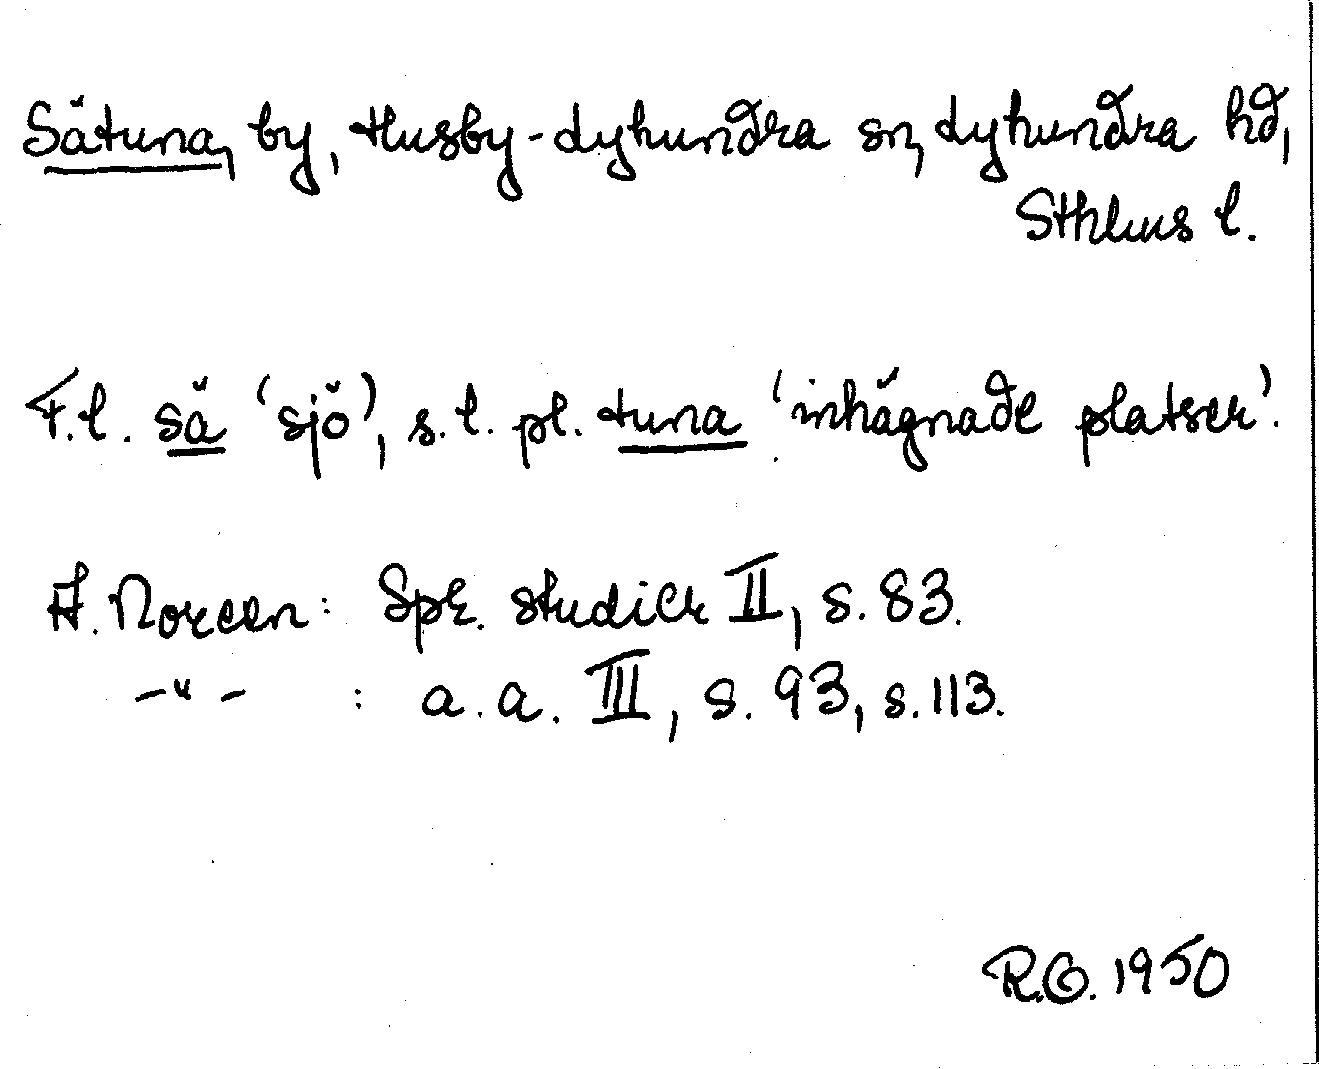 Sätuna, by, Husby-Lyhundra sn, Lyhundra hd,
Sthlms l.
F.l. sä 'sjö', s.l. pl. tuna 'inhägnade platser'.
A. Noreen: Spr. studier II, s. 83.
-"- : a.a. III, s. 93, s. 113.
R.O. 1950